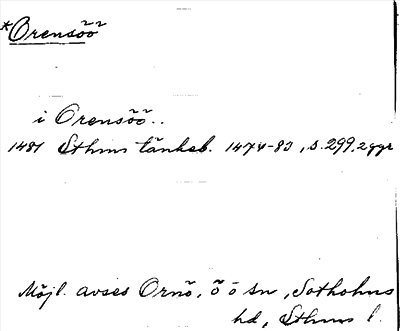 *Orensöö
i Orensöö..
1481 Sthms tänkeb. 1474-83, s. 299, 2 ggr
Möjl. avses Ornö, Ö ö sn, Sotholms
hd, Sthms l.